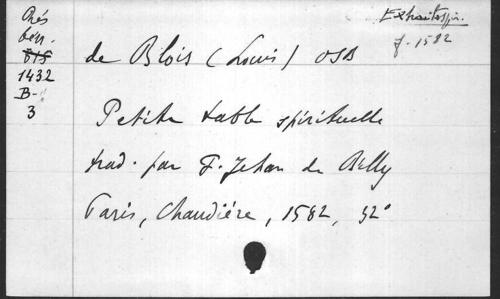 Rés
bén.
818
1432
B-
3
Extraits spir.
f. 1582
de Blois (Louis) OSB
Petite table spirituelle
trad. par F. Jehan de Billy
Paris, Chaudière, 1582, 32°